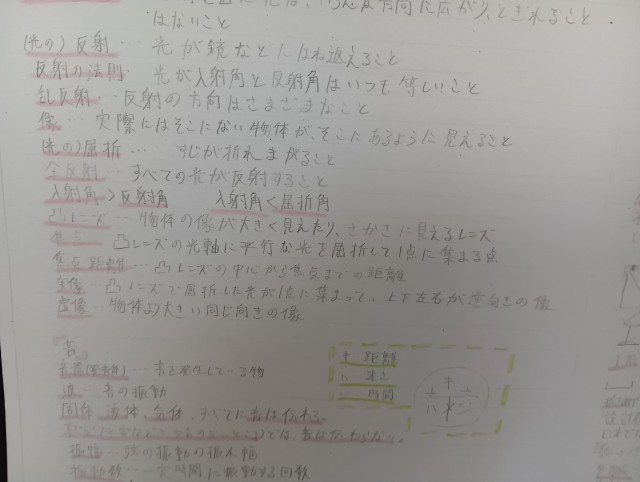 いろんな方向に広がり、とぎれること
はないこと
(光の)反射… 光が鏡などにはね返えること
反射の法則 光が入射角と反射角はいつも等しいこと
乱反射…反射の方向はさまざまなこと
像… 実際にはそこにない物体が、そこにあるように見えること
(光の)屈折… すじが折れまがること
全反射…すべての光が反射すること
入射角>反射角 入射角<屈折角
凸レンズ…物体の像が大きく見えたり、さかさに見えるレンズ
焦点 凸レンズの光軸に平行な光を屈折して1点に集まる点
焦点距離…凸レンズの中心から焦点までの距離
実像…凸レンズで屈折した光が1点に集まって、上下左右が逆向きの像
虚像…物体より大きい同じ向きの像
「音」
音源(発音体)…音を発生している物
波…音の振動
固体、液体、気体、すべてに音は伝わる。
では、音は伝わらない。
振幅…弦の振動の振れ幅
振動数…一定時間に振動する回数
キ 距離
ハ 速さ
時間
キ
÷ ÷
ハ × じ